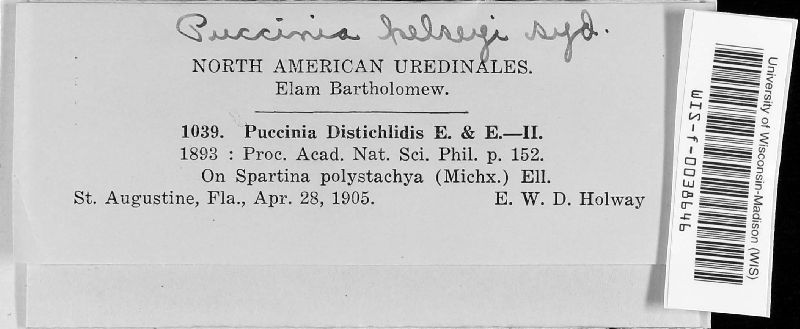 Puccinia kelseyi syd.
NORTH AMERICAN UREDINALES.
Elam Bartholomew.
1039. Puccinia Distichlidis E. & E.—II.
1893 : Proc. Acad. Nat. Sci. Phil. p. 152.
On Spartina polystachya (Michx.) Ell.
St. Augustine, Fla., Apr. 28, 1905. E. W. D. Holway
University of Wisconsin-Madison (WIS)
WIS-f-0038646